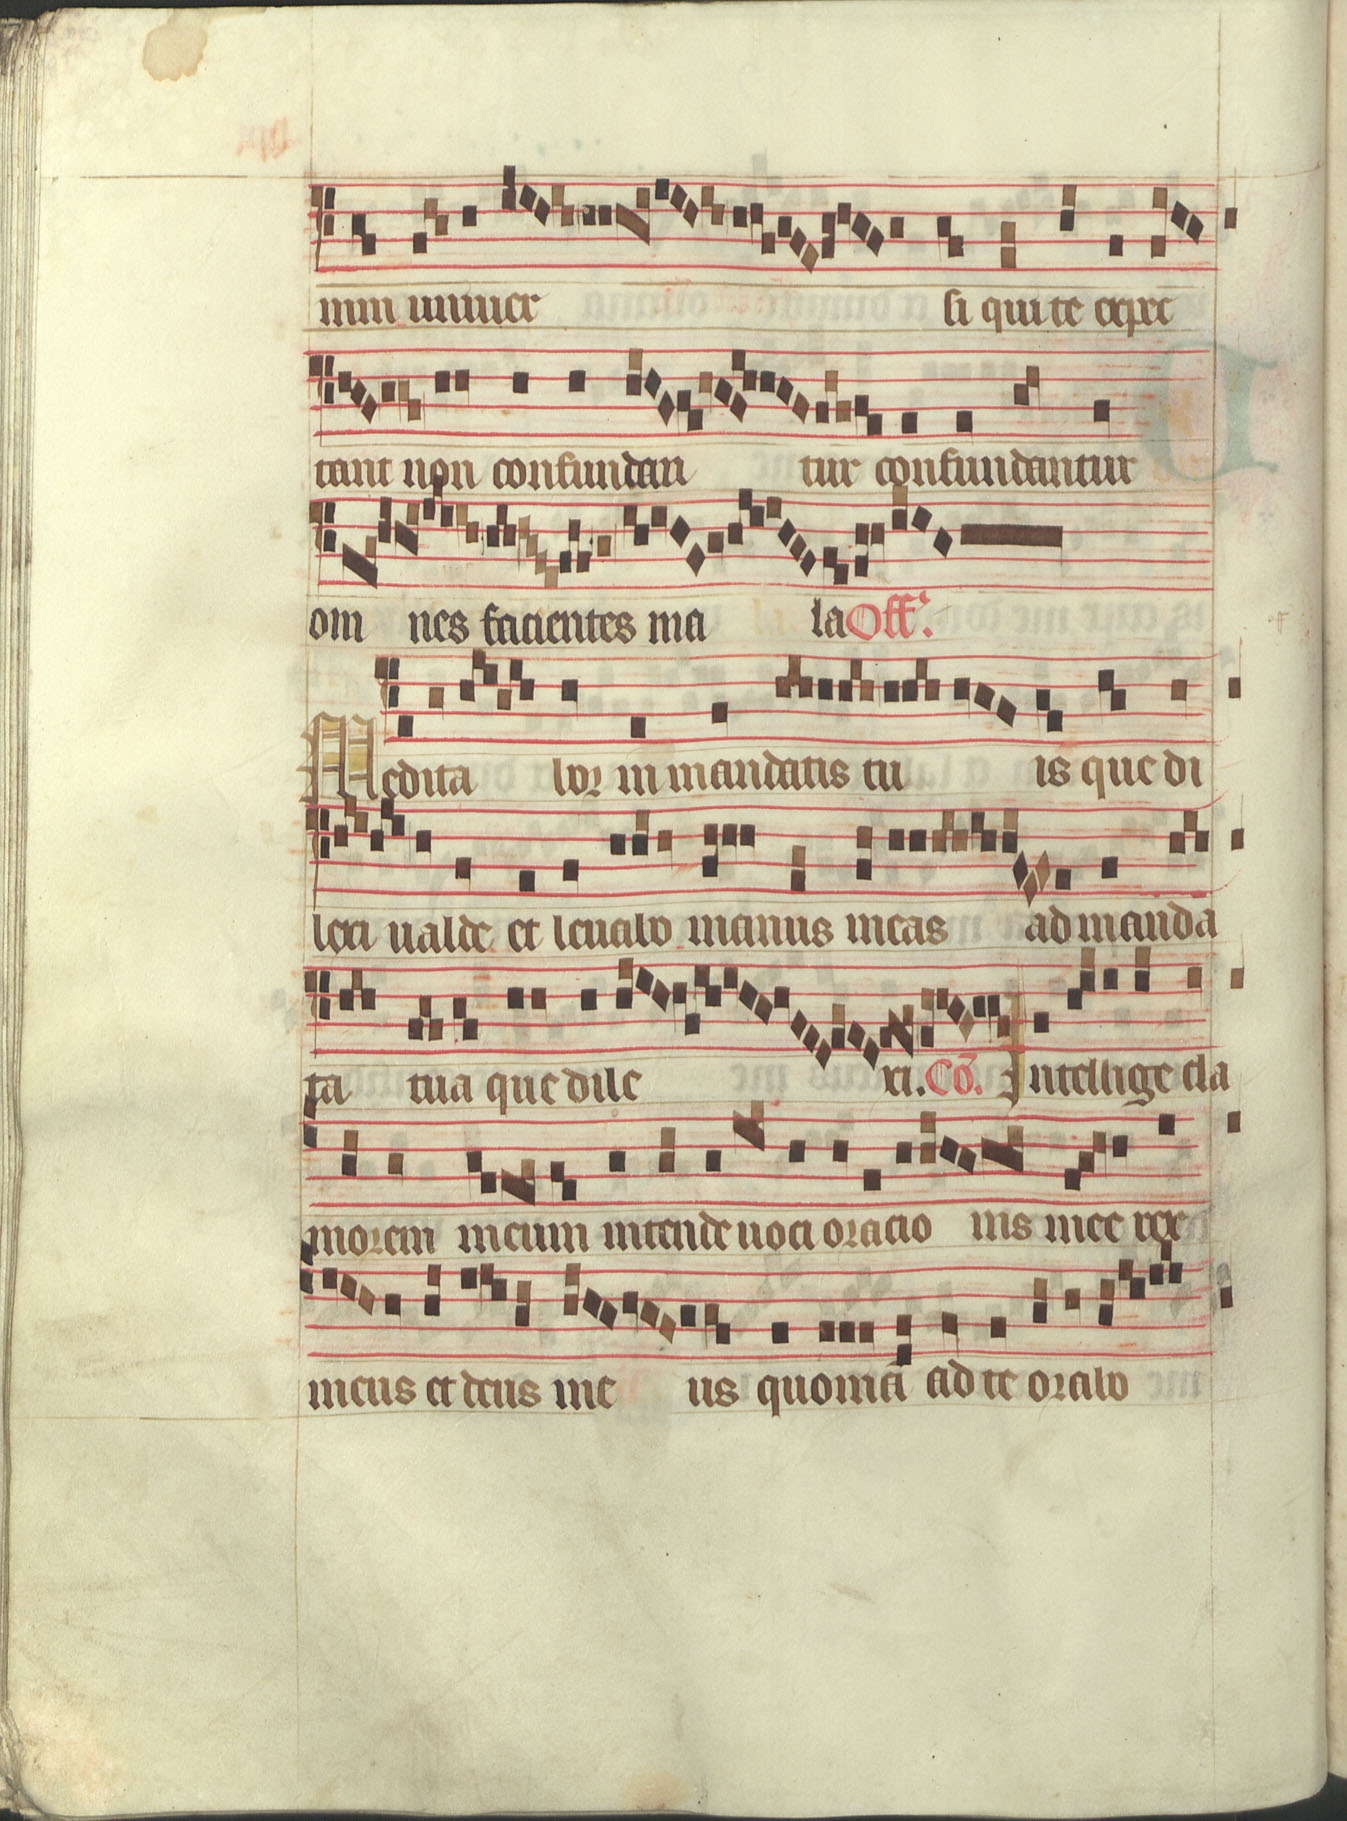 nim uniuer si qui te expec
tant non confundan tur confundantur
om nes facientes ma la Off.
Medita bor in mandatis tu is que di
lexi ualde et leuabo manus meas ad manda
ta tua que dile xi. Cō. Intellige cla
morem meum intende uoci oratio nis mee rex
meus et deus me us quoniā ad te orabo